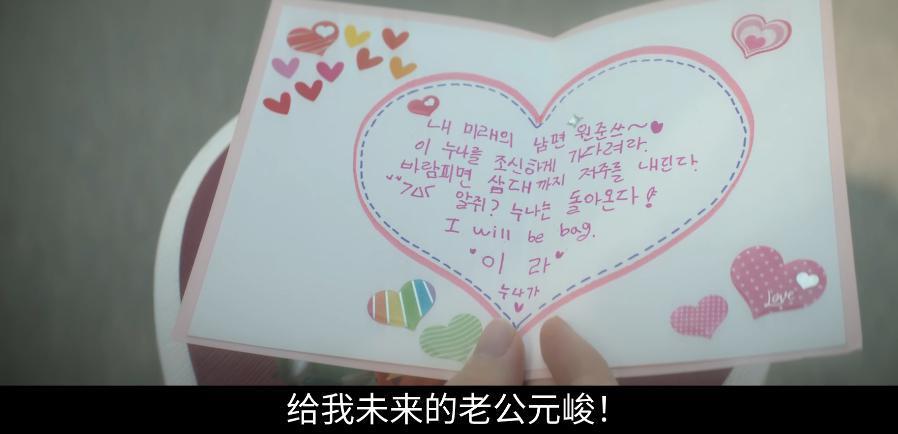 내 미래의 남편 원준쓰~
이 누나를 조신하게 기다려라.
바람피면 삼대까지 저주를 내린다.
알쥐? 누나는 돌아온다!
I will be bag.
이라
누나가
Love
给我未来的老公元峻!